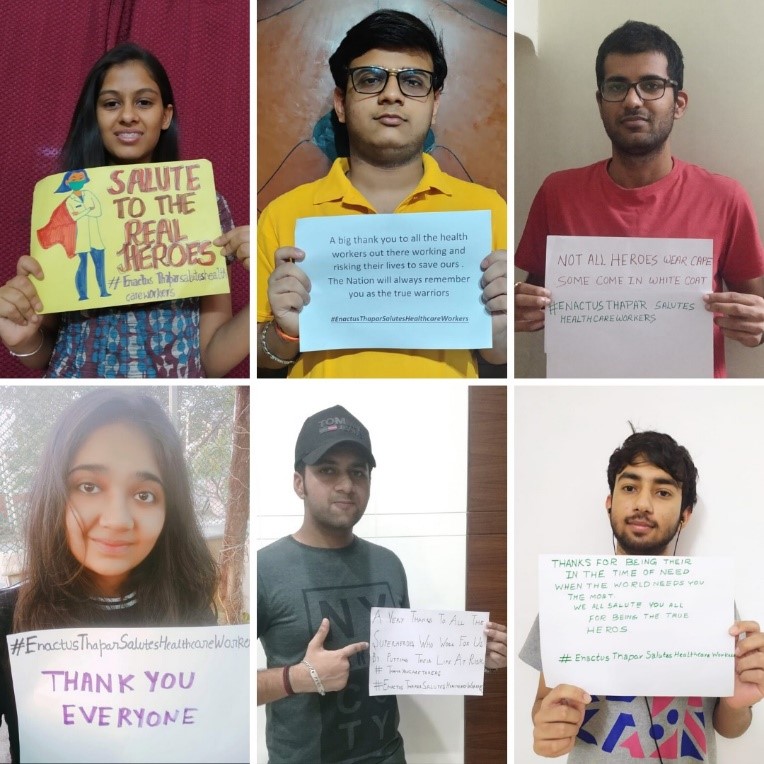 SALUTE
TO THE
REAL
HEROES
#Enactus Thaparsaluteshealth
careworkers
A big thank you to all the health
workers out there working and
risking their lives to save ours .
The Nation will always remember
you as the true warriors
#EnactusThaparSalutesHealthcareWorkers
NOT ALL HEROES WEAR CAPE
SOME COME IN WHITE COAT
#ENACTUSTHAPAR SALUTES
HEALTHCAREWORKERS
#EnactusThaparSalutesHealthcareWorke
THANK YOU
EVERYONE
TOM
NY
A Very Thanks To All The
Superheroes Who Work For Us
By Putting Their Life At Risk
#Enactus Thapar Salutes
THANKS FOR BEING THEIR
IN THE TIME OF NEED
WHEN THE WORLD NEEDS YOU
THE MOST
WE ALL SALUTE YOU ALL
FOR BEING THE TRUE
HEROS
# Enactus Thapar Salutes HealthCareWorker